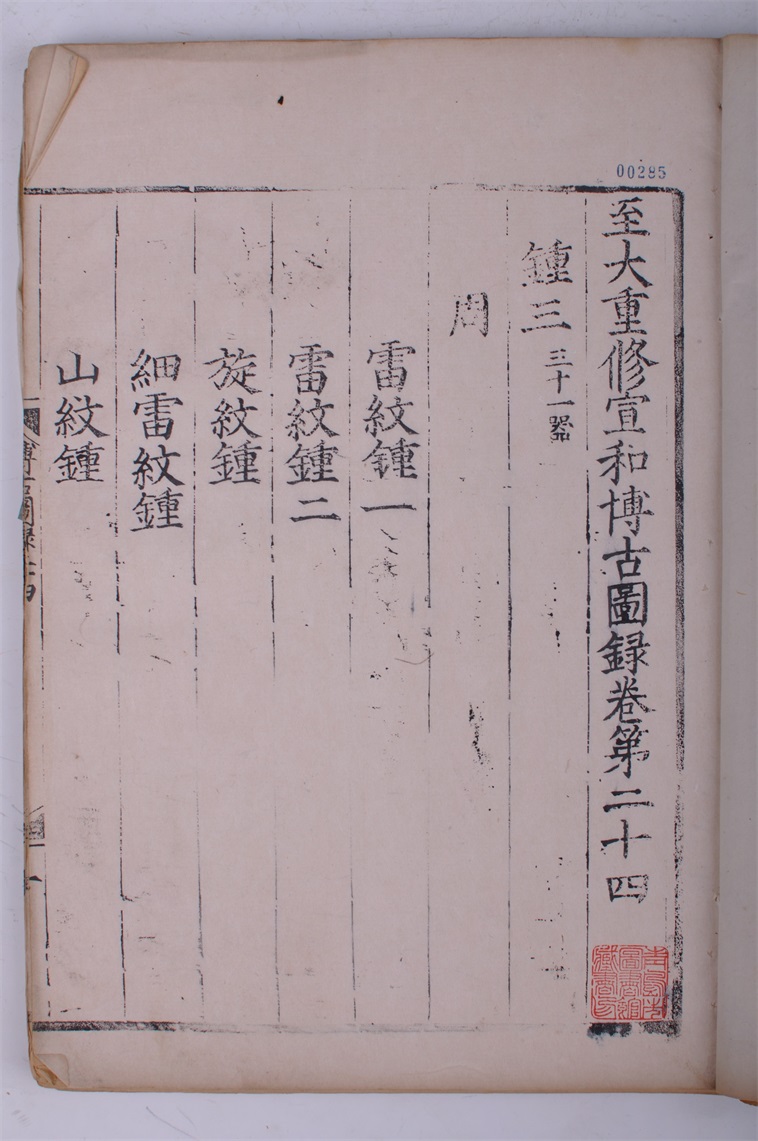 00285
至大重修宣和博古圖録卷第二十四
鍾三 三十一器
周
雷紋鍾一
雷紋鍾二
旋紋鍾
細雷紋鍾
山紋鍾
青島市圖書館藏書印